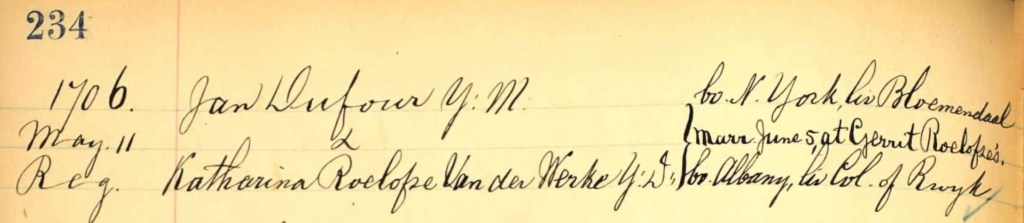 234
1706. Jan Dufour Y: M. bo. N. York, liv Bloemendaal
May. 11 & marr. June 5, at Gerrit Roelofse's.
Reg. Katharina Roelofse Van der Werke Y: D: bo. Albany, liv Col. of Rwyk